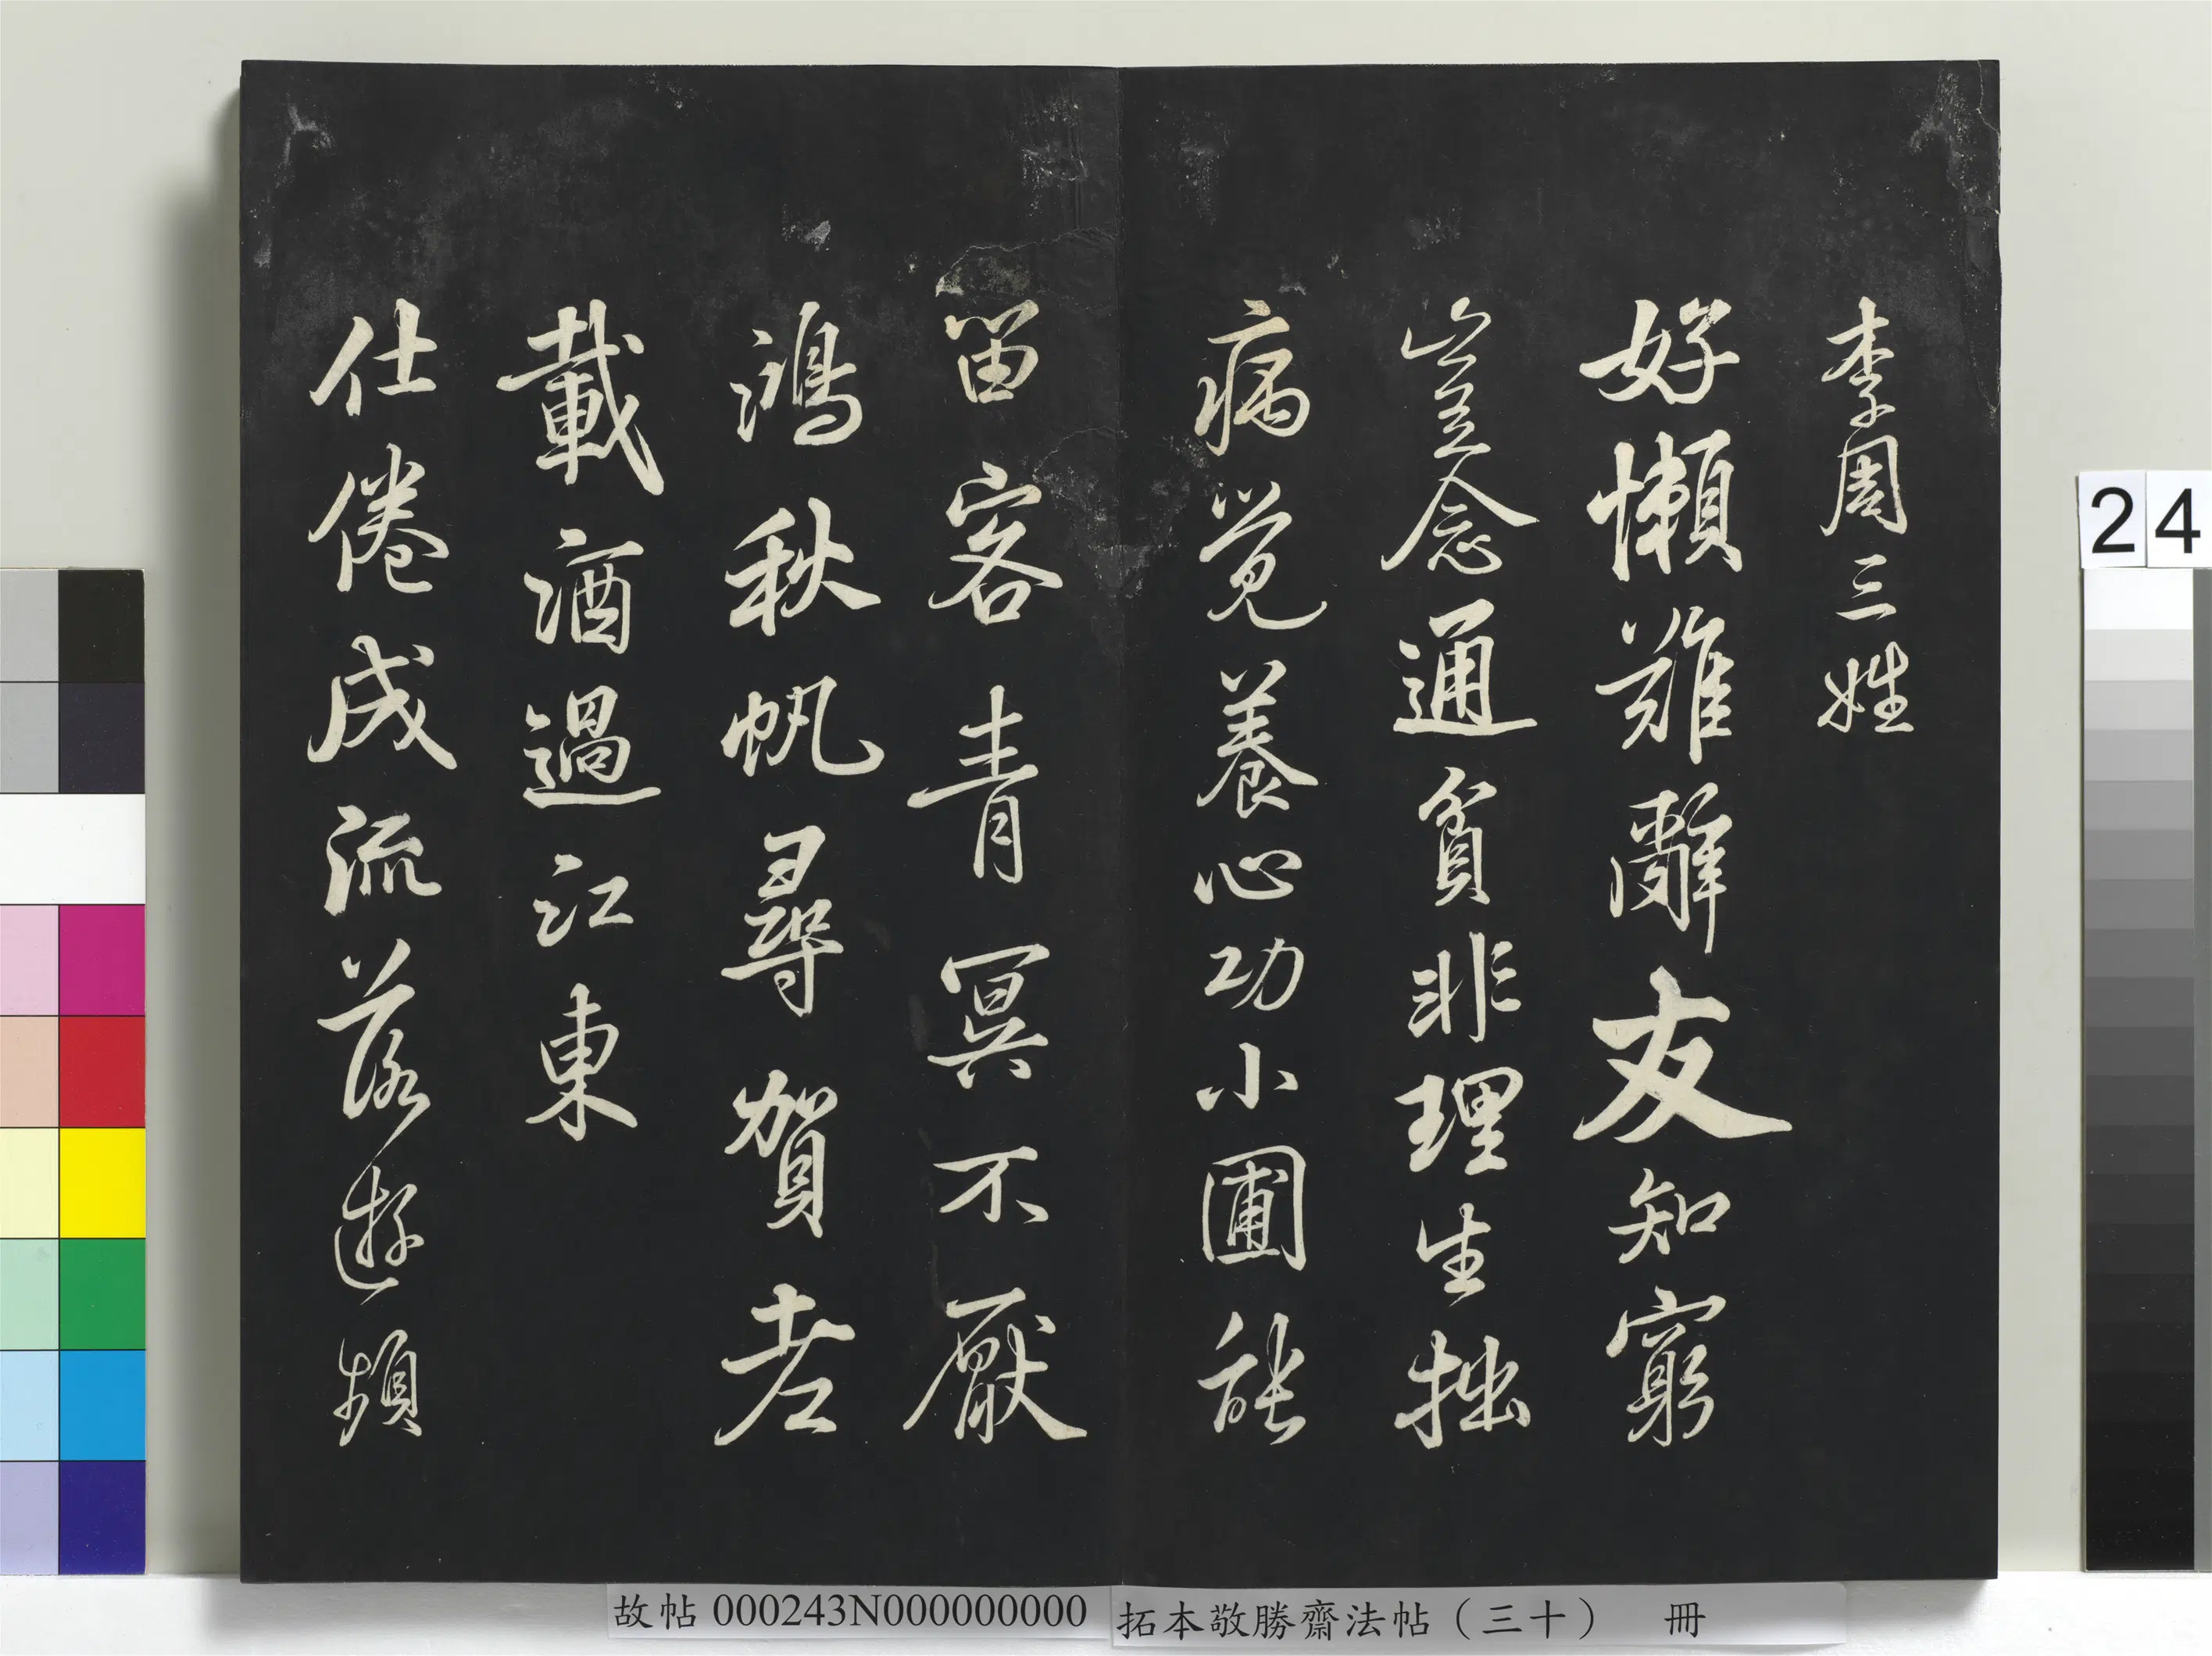 李周三姓
好懶難辭友知窮
豈念通貧非理生拙
病覺養心功小圃能
留客青冥不厭
鴻秋帆尋賀老
載酒過江東
仕倦成流落遊頻
24
故帖 000243N000000000
拓本敬勝齋法帖（三十） 冊